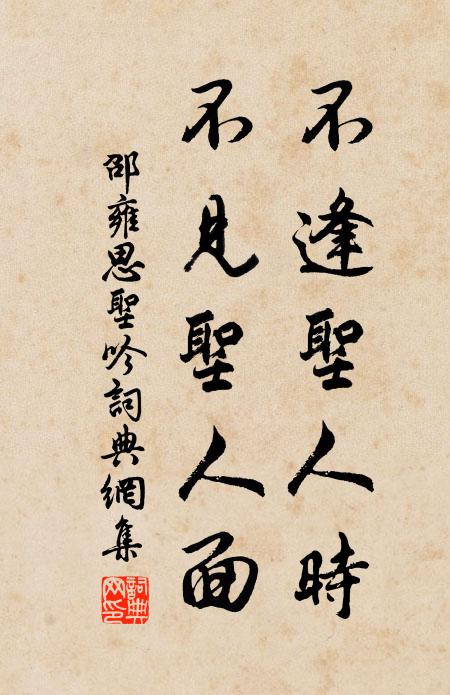 不逢聖人時
不見聖人面
邵雍思聖吟詞典網集
詞典網印